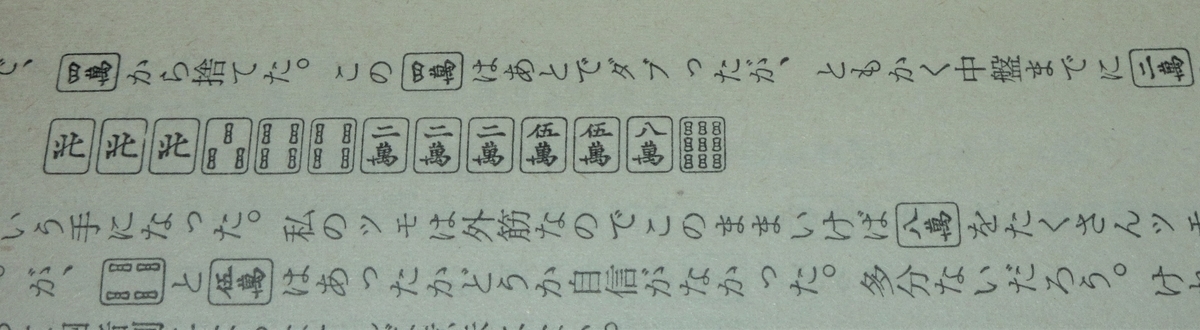 、四萬から捨てた。この四萬はあとでダブったが、ともかく中盤までに二萬
北北北二萬二萬二萬伍萬伍萬八萬
いう手になった。私のツモは外筋なのでこのままいけば八萬をたくさんツモ
。が、と伍萬はあったかどうか自信がなかった。多分ないだろう。け